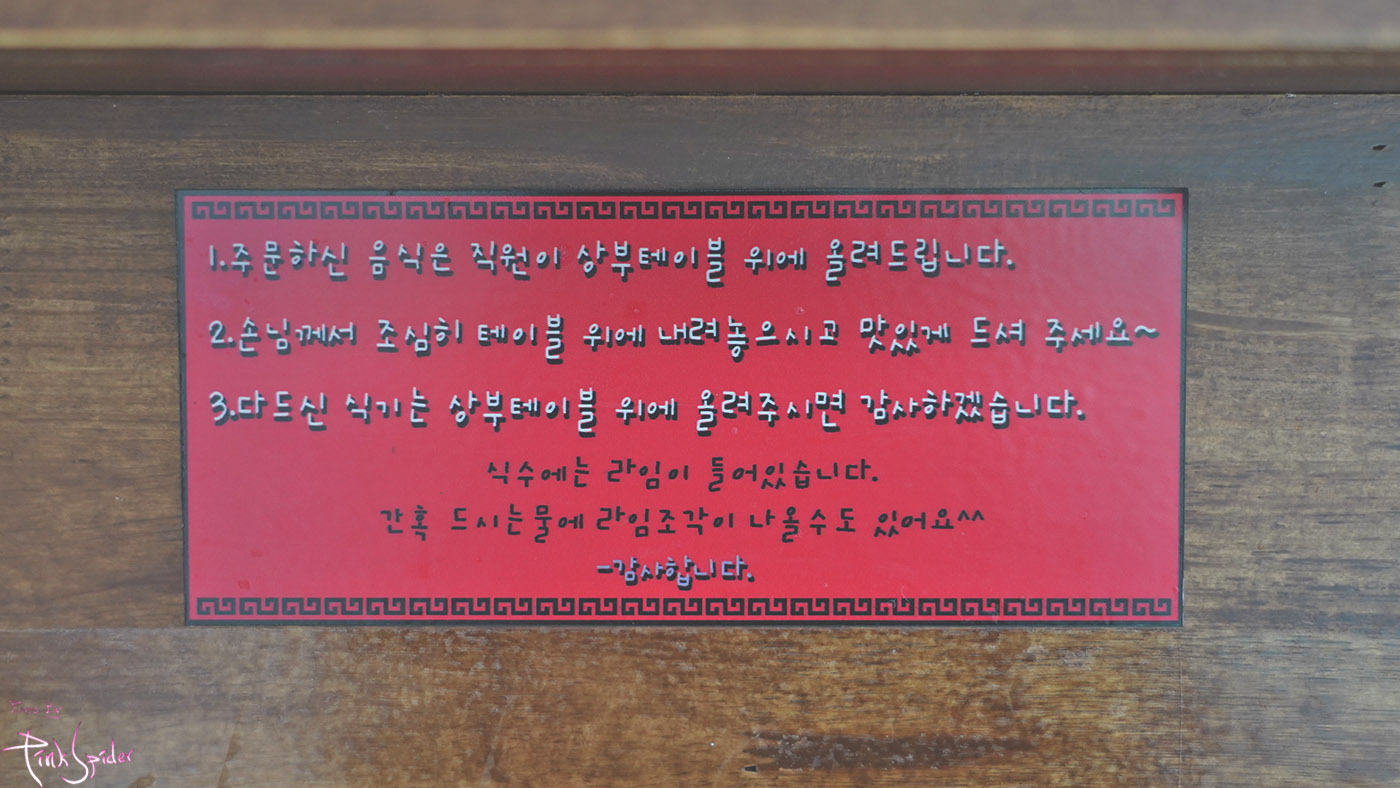 1.주문하신 음식은 직원이 상부테이블 위에 올려드립니다.
2.손님께서 조심히 테이블 위에 내려놓으시고 맛있게 드셔 주세요~
3.다드신 식기는 상부테이블 위에 올려주시면 감사하겠습니다.
식수에는 라임이 들어있습니다.
간혹 드시는물에 라임조각이 나올수도 있어요^^
-감사합니다.
PinkSpider